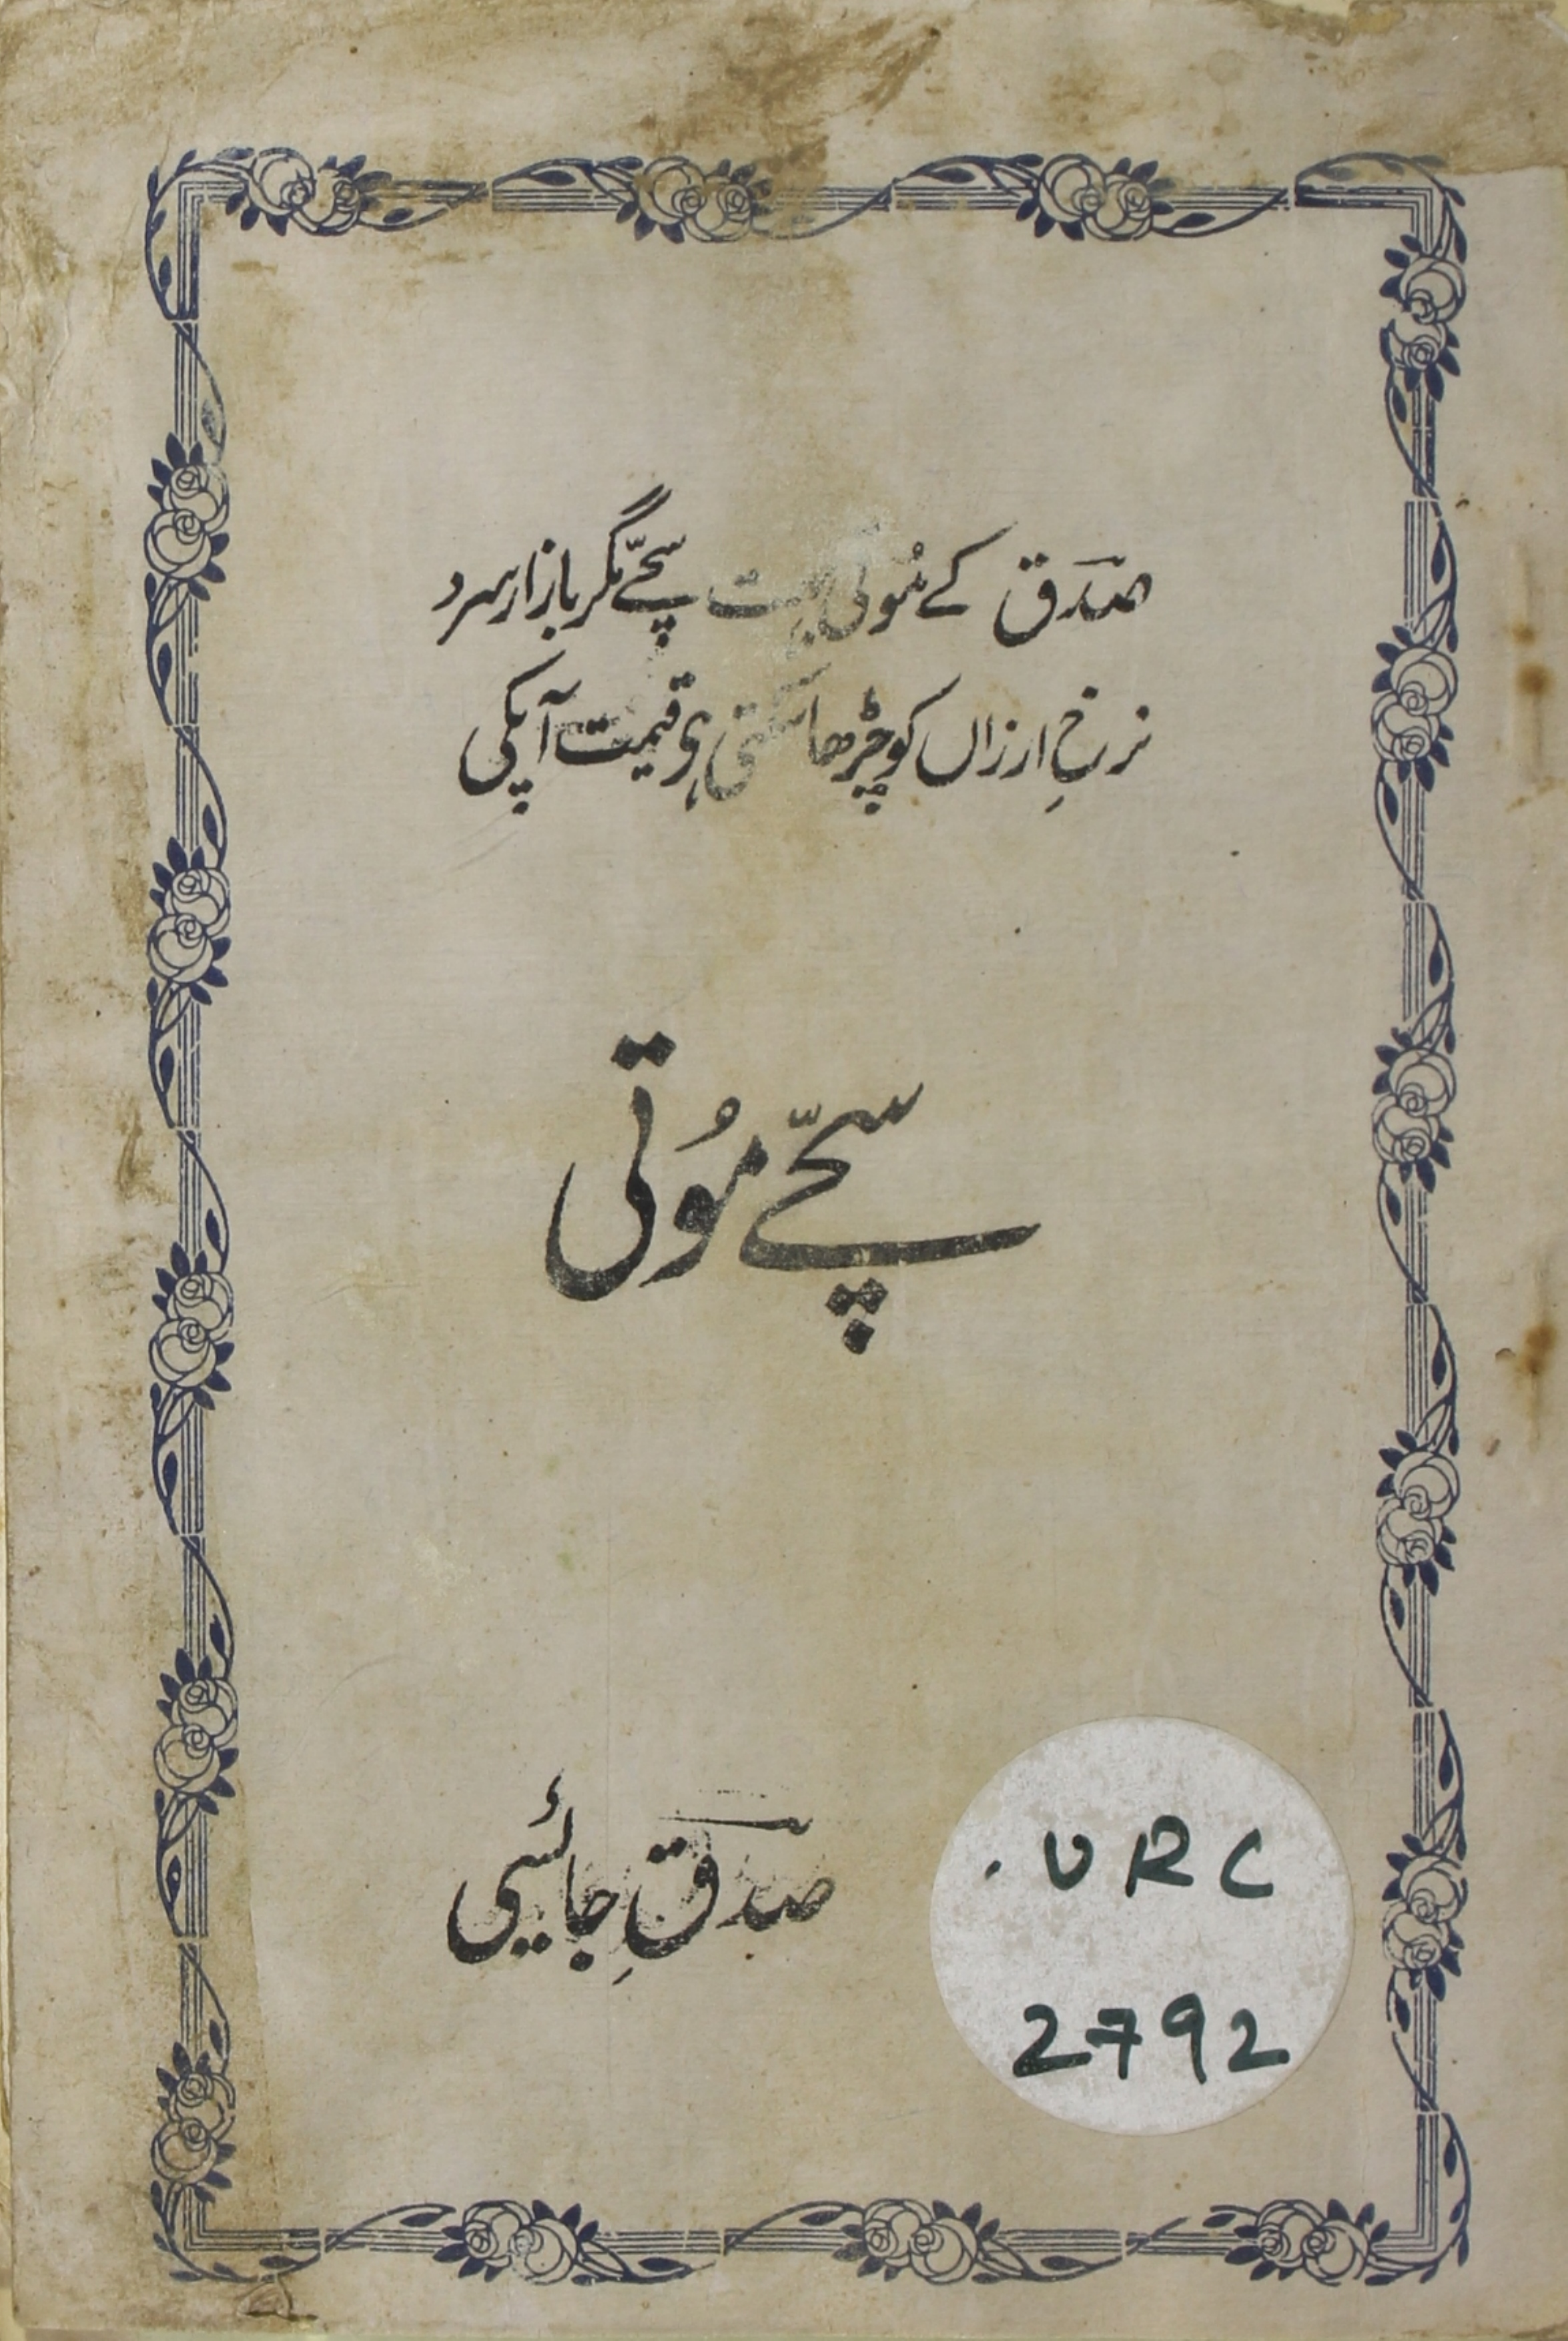 صدق کے مُوتی بہت سچّے مگر بازار سرد
نرخِ ارزاں کو چڑھا سکتی ہی قیمت آپکی
سچّے مُوتی
صدقِ جائسی
. URC
2792